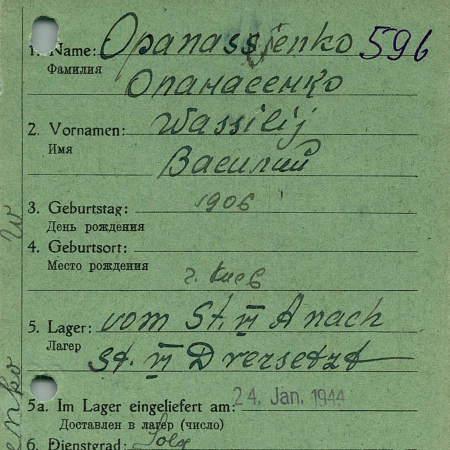 1. Name: Opanassjenko 596
Фамилия
Опанасенко
2. Vornamen: Wassilij
Имя
Василий
3. Geburtstag: 1906
День рождения
4. Geburtsort:
Место рождения
г. Киев
5. Lager: vom St. VI A nach
Лагер
St. VI D versetzt
5a. Im Lager eingeliefert am: 24. Jan. 1944
Доставлен в лагер (число)
6. Dienstgrad: